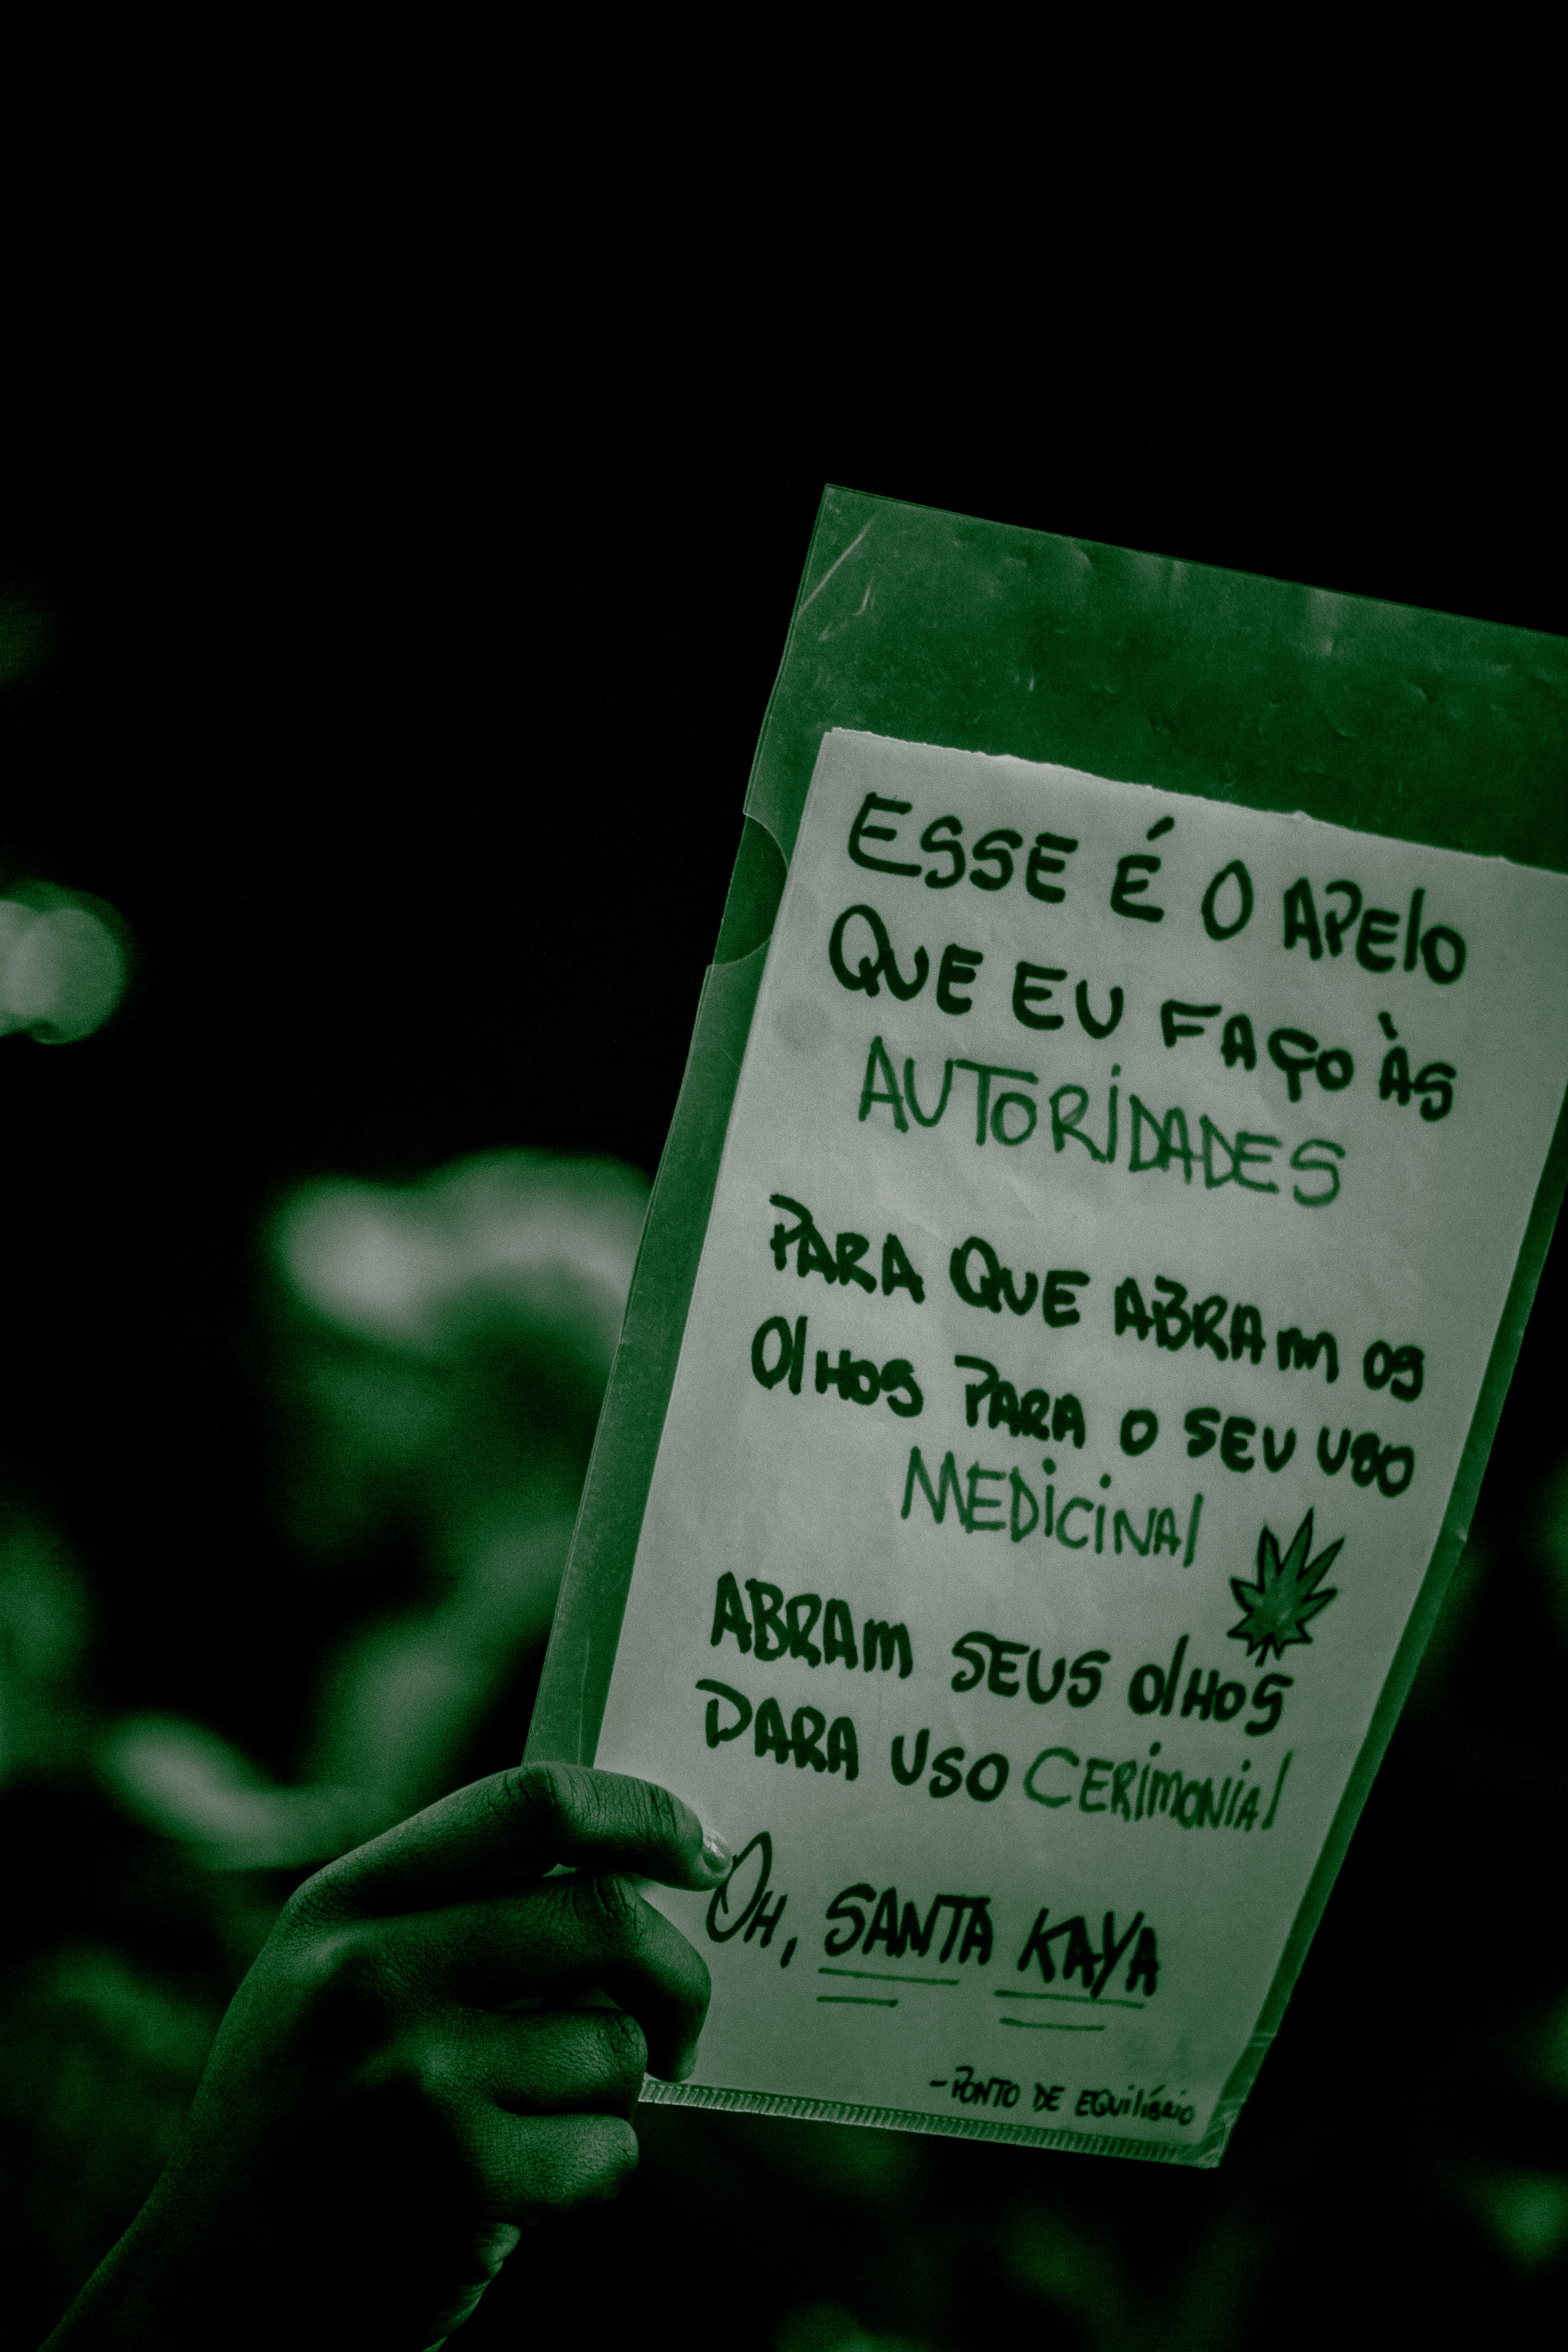 ESSE É O APElO
QUE EU FAÇO ÀS
AUTORiDADES
PARA QUE ABRAm OS
OlHOS PARA O SEU USO
MEDiCiNAl
ABRAm SEUS OlHOS
PARA USO CERiMONiAl
OH, SANTA KAYA
-PONTO DE EQUilíBRiO